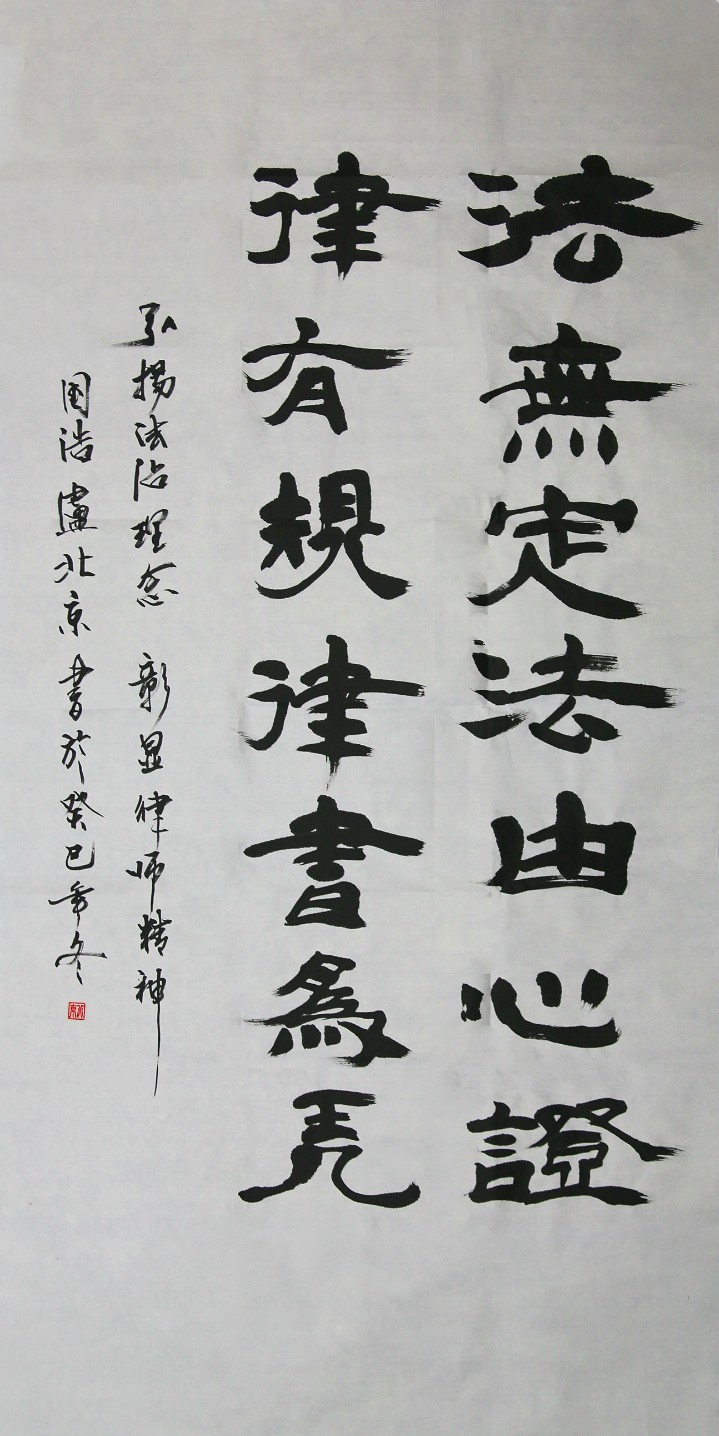 法無定法由心證
律有規律書爲
弘揚法治理念 彰显律师精神
国浩盧北京書於癸巳年冬